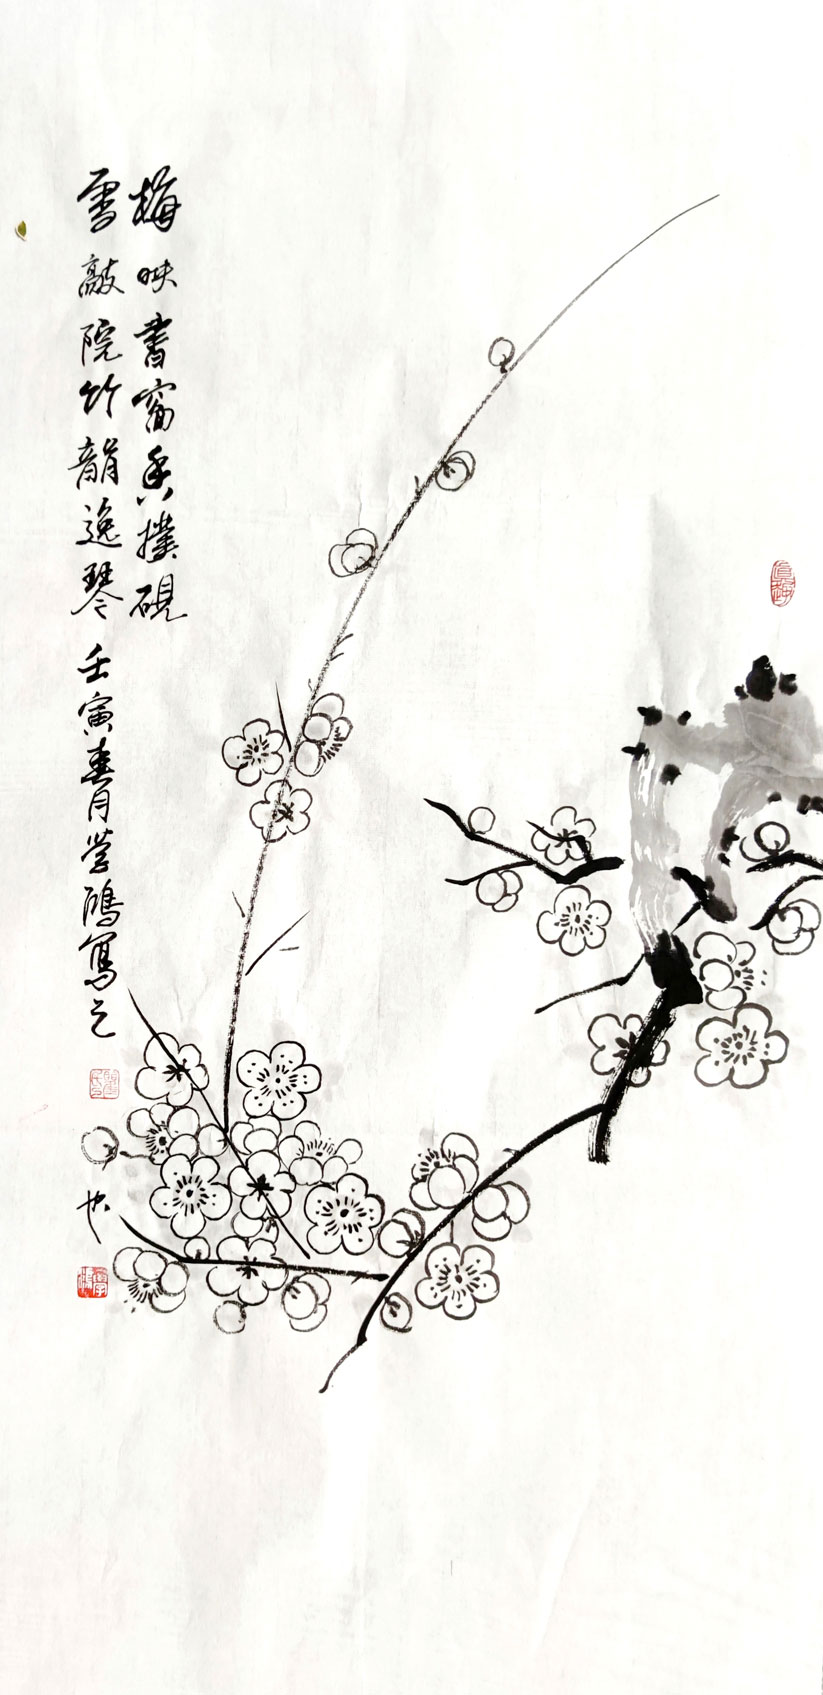 梅映書窗香撲硯
雪敲院竹韻逸琴
壬寅春月学鴻寫之